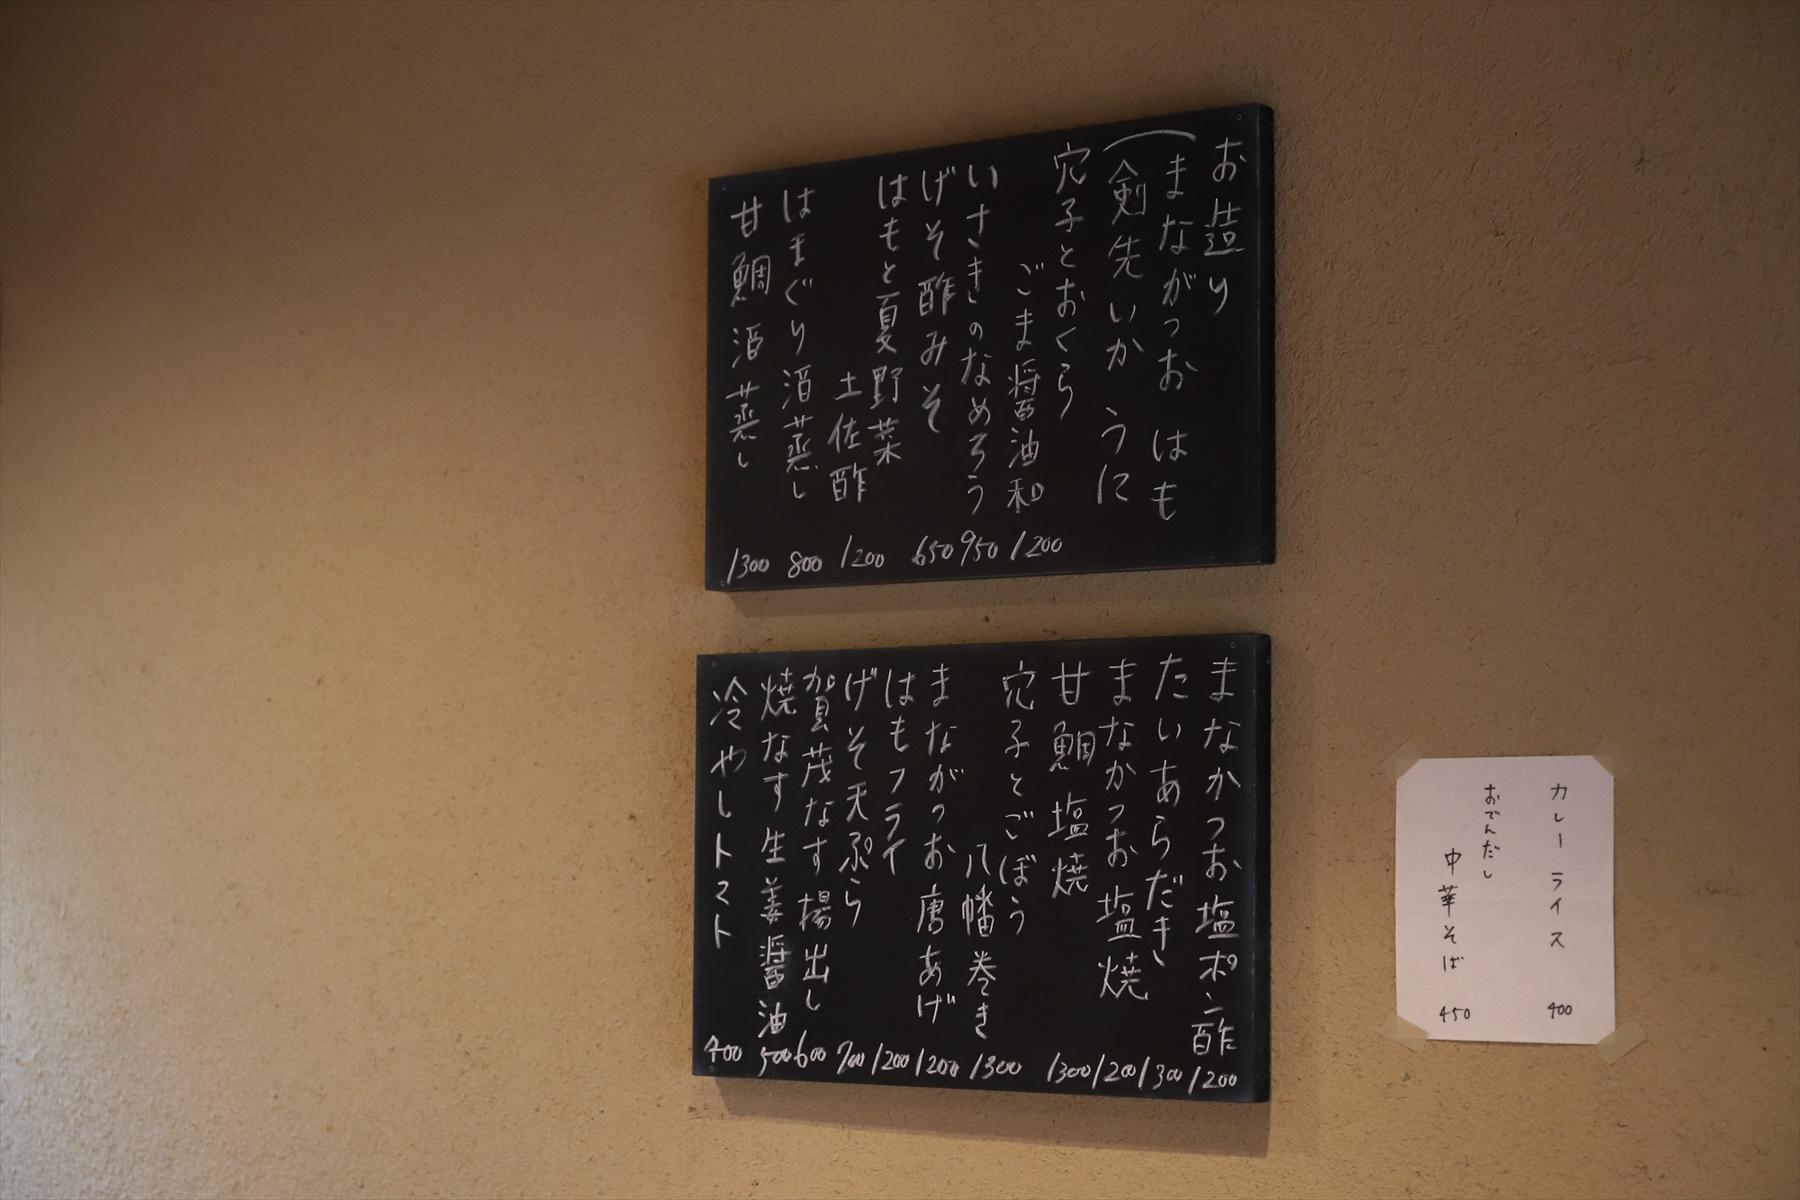 お造り
まながつお はも
剣先いか うに
穴子とおくら
ごま醤油和 1200
いさきのなめろう 950
げそ酢みそ 650
はもと夏野菜
土佐酢 1200
はまぐり酒蒸し 800
甘鯛酒蒸し 1300
まなかつお塩ポン酢 1200
たいあらだき 1300
まなかつお塩焼 1200
甘鯛塩焼 1300
穴子とごぼう
八幡巻き 1300
まながつお唐あげ 1200
はもフライ 1200
げそ天ぷら 700
賀茂なす揚出し 600
焼なす生姜醤油 500
冷やしトマト 400
カレーライス 400
おでんだし
中華そば 450